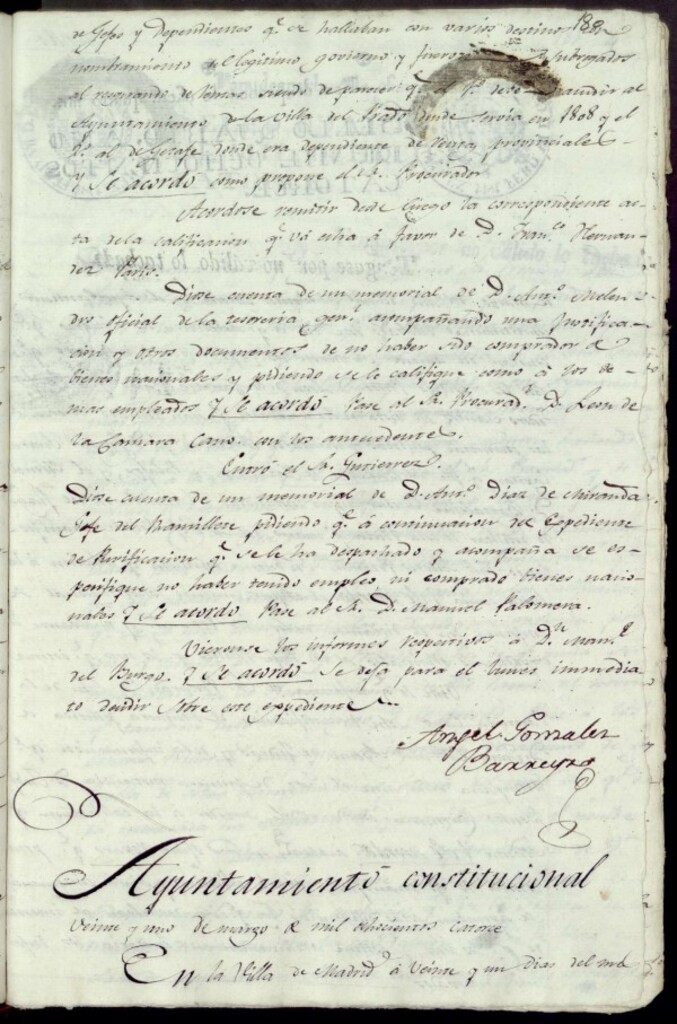 188
de Gefes y dependientes q.e se hallaban con varios destinos
nombramiento del legitimo govierno y fueron subrogados
al resguardo de Rentas siendo de parecer q.e el 1.º debe acudir al
Ayuntamiento de la Villa del Prado donde servia en 1808 y el
2.º al de Getafe donde era dependiente de Rentas provinciales
Y Se acordó como propone el S.r Procurador
Acordose remitir desde luego la correspondiente ac-
ta de la calificacion q.e vá echa á favor de D. Fran.co Hernan-
dez
Diose cuenta de un memorial de D. Ant.º Melen-
dro oficial de la tesoreria gen.l acompañando una Justifica-
cion y otros documentos de no haber sido comprador de
bienes nacionales y pidiendo se le califique como á los de-
mas empleados Y Se acordó Pase al S.r Procurad.r D. Leon de
la Camara Cano con los antecedentes.
Entró el S.r Gutierrez.
Diose cuenta de un memorial de D. Ant.º Diaz de Miranda
Gefe del Ramillete pidiendo q.e á continuacion del Expediente
de Purificacion q.e se le ha despachado y acompaña se es-
pecifique no haber tenido empleo, ni comprado bienes nacio-
nales Y Se acordó Pase al S.r D. Manuel Palomera.
Vieronse los informes respectivos á D.n Man.l
del Burgo. Y Se acordó Se deja para el lunes immedia
to decidir sobre este expediente
Angel Gonzalez
Barreyro
Ayuntamiento constitucional
Veinte y uno de marzo de mil ochocientos catorce
En la Villa de Madrid á Veinte y un dias del mes